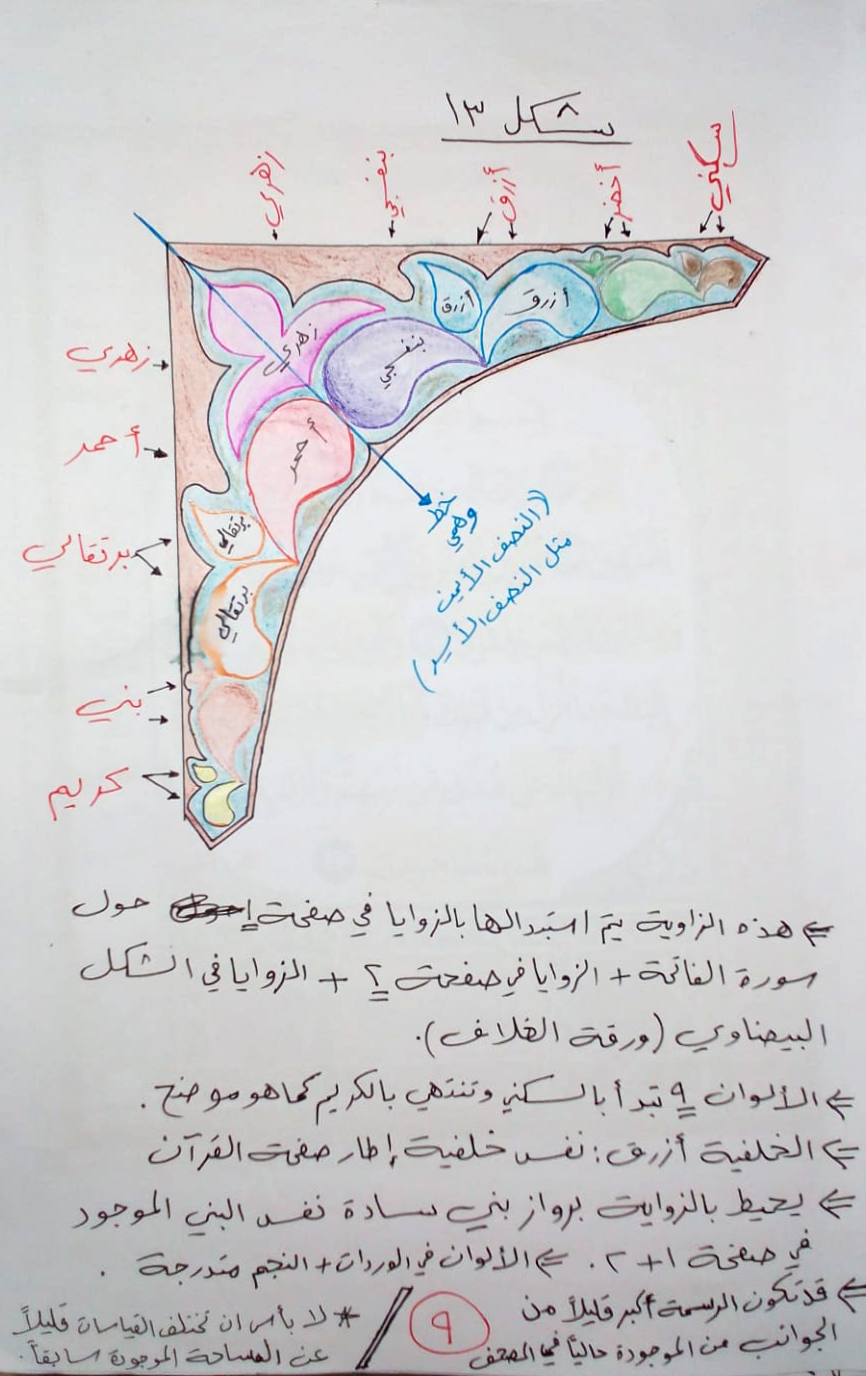 شكل ١٣
سكني
أخضر
أزرق
بنفسجي
زهري
أزرق
أزرق
بنفسجي
زهري
زهري
أحمر
أحمر
برتقالي
برتقالي
برتقالي
بني
كريم
خط
وهمي
(النصف الأيمن
مثل النصف الأيسر)
⇐ هذه الزاوية يتم استبدالها بالزوايا في صفحة 1 حول
سورة الفاتحة + الزوايا في صفحة 2 + الزوايا في الشكل
البيضاوي (ورقة الغلاف).
⇐ الألوان 9 تبدأ بالسكني وتنتهي بالكريم كما هو موضح.
⇐ الخلفية أزرق: نفس خلفية إطار صفحة القرآن
⇐ يحيط بالزواية برواز بني سادة نفس البني الموجود
في صفحة ١+٢. ⇐ الألوان في الوردات + النجم متدرجة.
⇐ قد تكون الرسمة أكبر قليلاً من
الجوانب من الموجودة حالياً في المصحف
٩
* لا بأس ان تختلف القياسات قليلاً
عن المساحة الموجودة سابقاً.